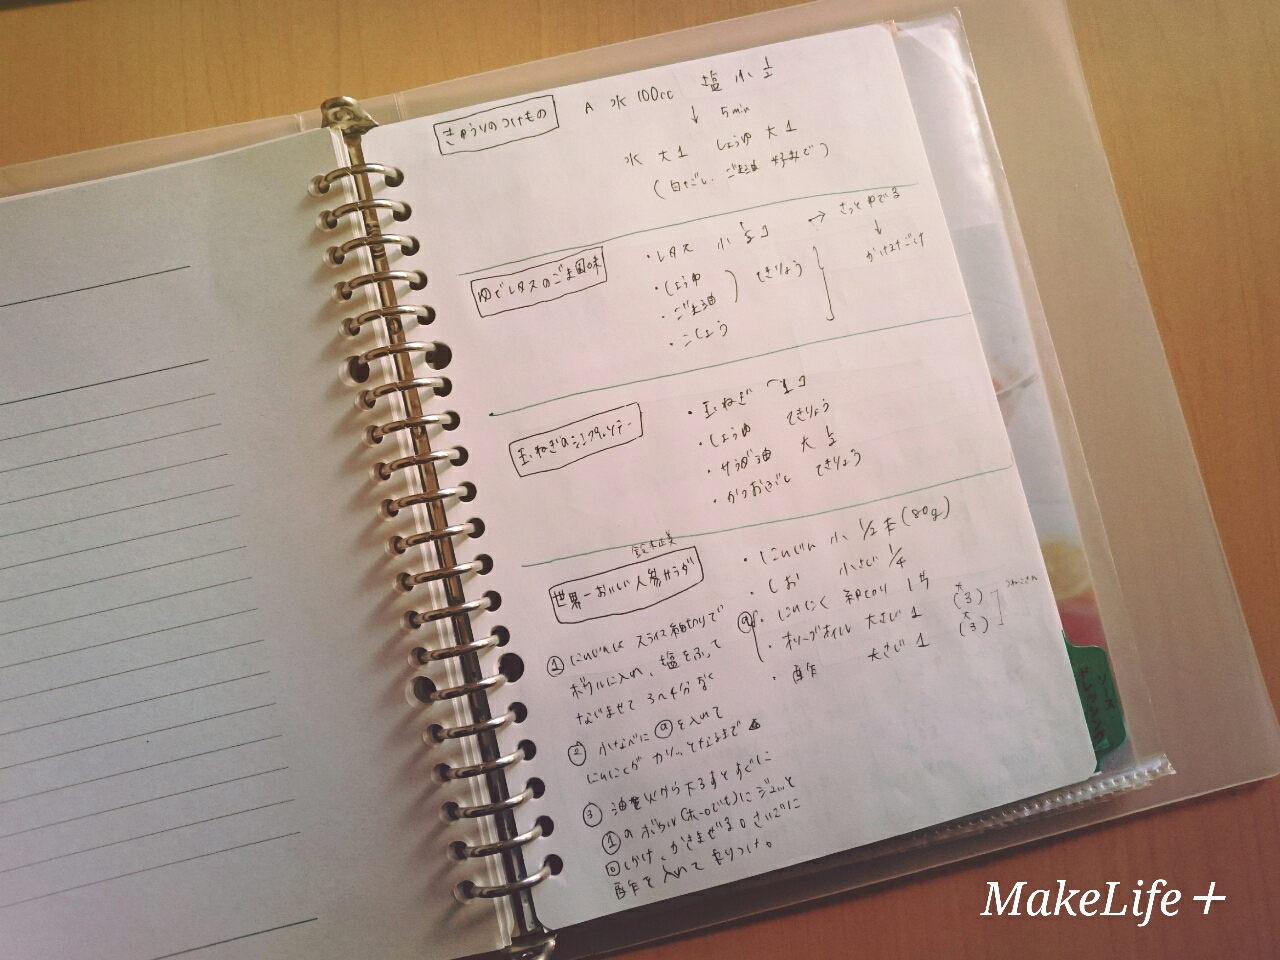 きゅうりのつけもの
A 水 100cc 塩 小 1/2
↓ 5min
水 大1 しょうゆ 大1
(白だし、ごま油 好みで)
ゆでレタスのごま風味
・レタス 小 1/2コ → さっとゆでる
↓
・しょうゆ
・ごま油
てきりょう
・こしょう
玉ねぎの
・玉ねぎ 1コ
・しょうゆ てきりょう
・サラダ油 大 1/2
・かつおぶし てきりょう
鈴木正美
世界一おいしい人参サラダ
・にんじん 小 1/2本(80g)
・しお 小さじ 1/4
ⓐ ・にんにく 細切り 1片
・オリーブオイル 大さじ1 (大3)
・酢 大さじ1 (大3)
① にんじんは スライス細切りで
ボウルに入れ、塩をふって
なじませて 3〜4分おく
② 小なべに ⓐを入れて
にんにくが カリッとなるまで
③ 油を火から下ろすとすぐに
①のボウル(ホーローでも)にジュッと
かけ、かきまぜる。さいごに
酢を入れて もりつけ。
ソース